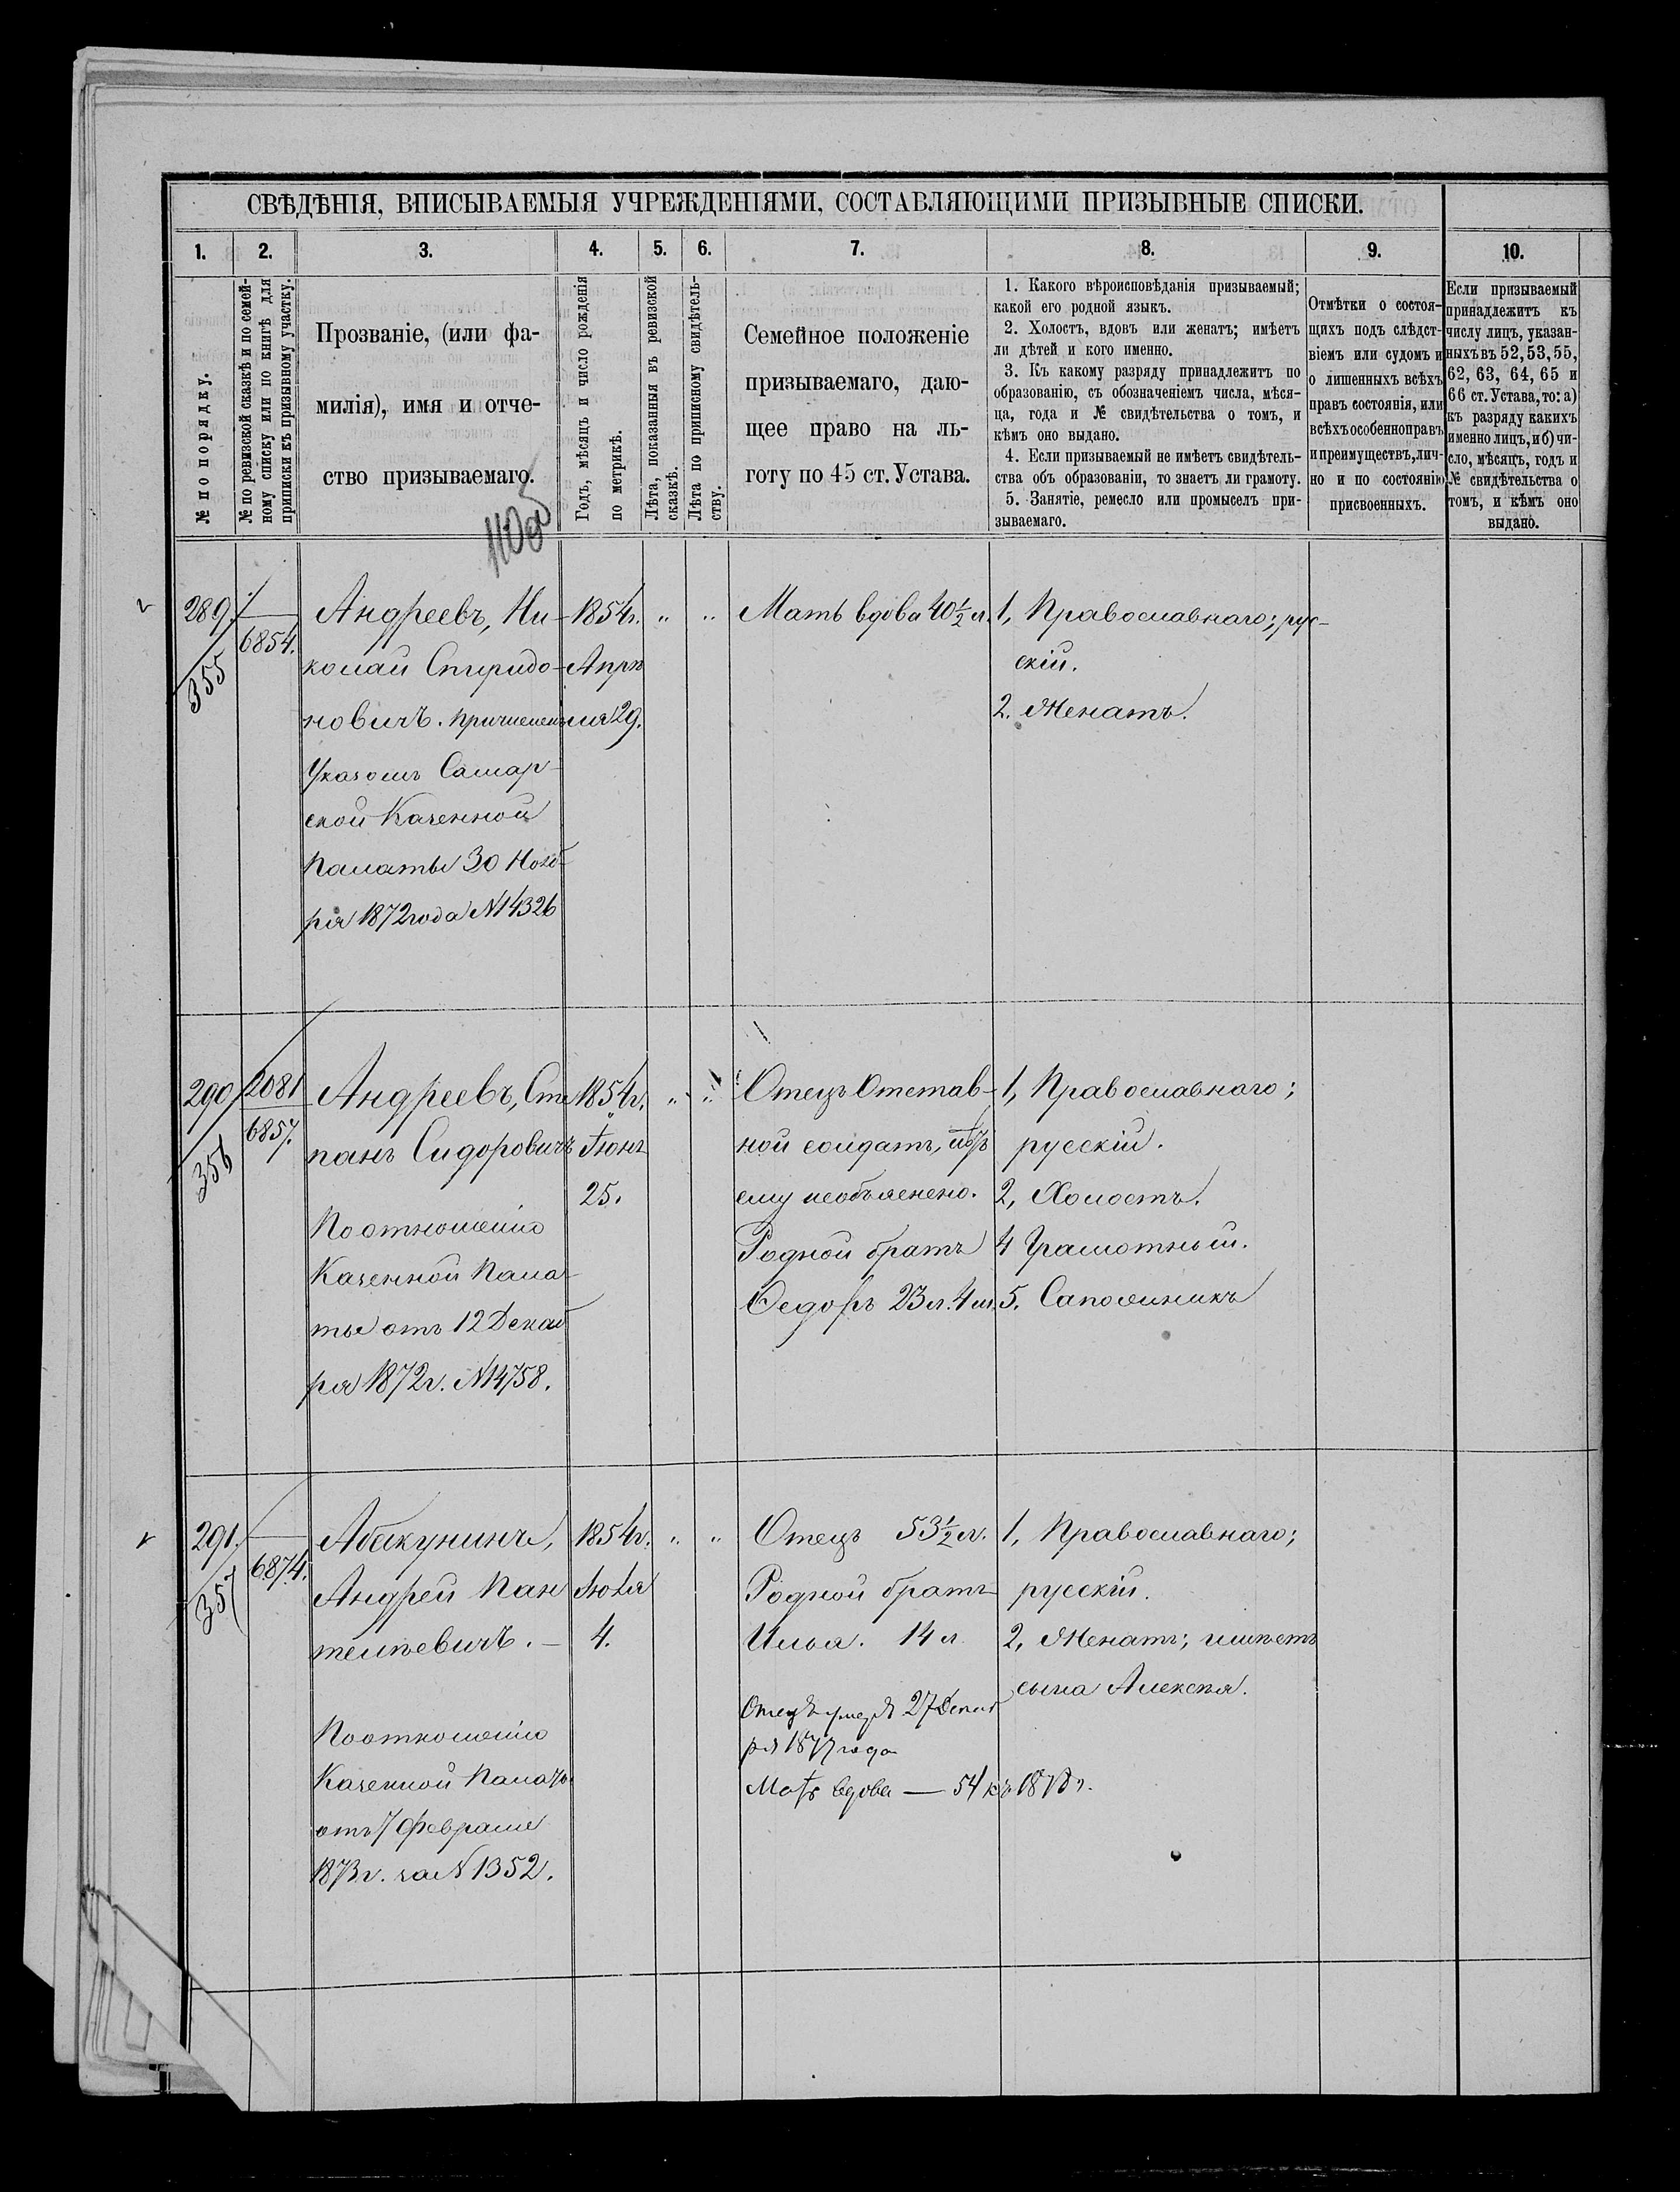 СВѢДѢНІЯ, ВПИСЫВАЕМЫЯ УЧРЕЖДЕНІЯМИ, СОСТАВЛЯЮЩИМИ ПРИЗЫВНЫЕ СПИСКИ.
1.
№ по порядку.
2.
№ по ревизской сказкѣ и по семей-
ному списку или по книгѣ для
приписки къ призывному участку.
3.
Прозваніе, (или фа-
милія), имя и отче-
ство призываемаго.
4.
Годъ, мѣсяцъ и число рожденія
по метрикѣ.
5.
Лѣта, показанныя въ ревизской
сказкѣ.
6.
Лѣта по приписному свидѣтель-
ству.
7.
Семейное положеніе
призываемаго, даю-
щее право на ль-
готу по 45 ст. Устава.
8.
1. Какого вѣроисповѣданія призываемый;
какой его родной языкъ.
2. Холостъ, вдовъ или женатъ; имѣетъ
ли дѣтей и кого именно.
3. Къ какому разряду принадлежитъ по
образованію, съ обозначеніемъ числа, мѣся-
ца, года и № свидѣтельства о томъ, и
кѣмъ оно выдано.
4. Если призываемый не имѣетъ свидѣтель-
ства объ образованіи, то знаетъ ли грамоту.
5. Занятіе, ремесло или промыселъ при-
зываемаго.
9.
Отмѣтки о состоя-
щихъ подъ слѣдст-
віемъ или судомъ и
о лишенныхъ всѣхъ
правъ состоянія, или
всѣхъ особенно правъ
и преимуществъ, лич-
но и по состоянію
присвоенныхъ.
10.
Если призываемый
принадлежитъ къ
числу лицъ, указан-
ныхъ въ 52, 53, 55,
62, 63, 64, 65 и
66 ст. Устава, то: а)
къ разряду какихъ
именно лицъ, и б) чи-
сло, мѣсяцъ, годъ и
№ свидѣтельства о
томъ, и кѣмъ оно
выдано.
289.
355
6854.
Андреевъ, Ни-
колай Спиридо-
новичъ. Причисленъ
Указомъ Самар-
ской Казенной
Палаты 30 Нояб-
ря 1872 года №14326
1854г.
Апрѣ
ля 29.
" "
Мать вдова 40½ л.
1, Православнаго; рус-
скій.
2. Женатъ.
290
356
2081
6857.
Андреевъ, Сте
панъ Сидоровичъ
По отношенію
Казенной Пала-
ты отъ 12 Декаб
ря 1872г. №14758.
1854г.
Іюнь
25.
" "
Отецъ Отстав-
ной солдатъ, лѣтъ
ему необъяснено.
Родной братъ
Ѳедоръ 23 л. 4 м.
1, Православнаго;
русскій.
2, Холостъ.
4 Грамотный.
5. Сапожникъ
291.
357
6874.
Абекунинъ,
Андрей Пан
телѣевичъ. —
По отношенію
Казенной Палаты
отъ 7 февраля
1873г. за № 1352.
1854г.
Іюля
4.
" "
Отецъ 53½ л.
Родной братъ
Илья. 14 л
Отецъ умеръ 27 Декаб
ря 1877 года
Мать вдова — 54 къ 1878 г.
1, Православнаго;
русскій.
2, Женатъ; имѣетъ
сына Алексѣя.